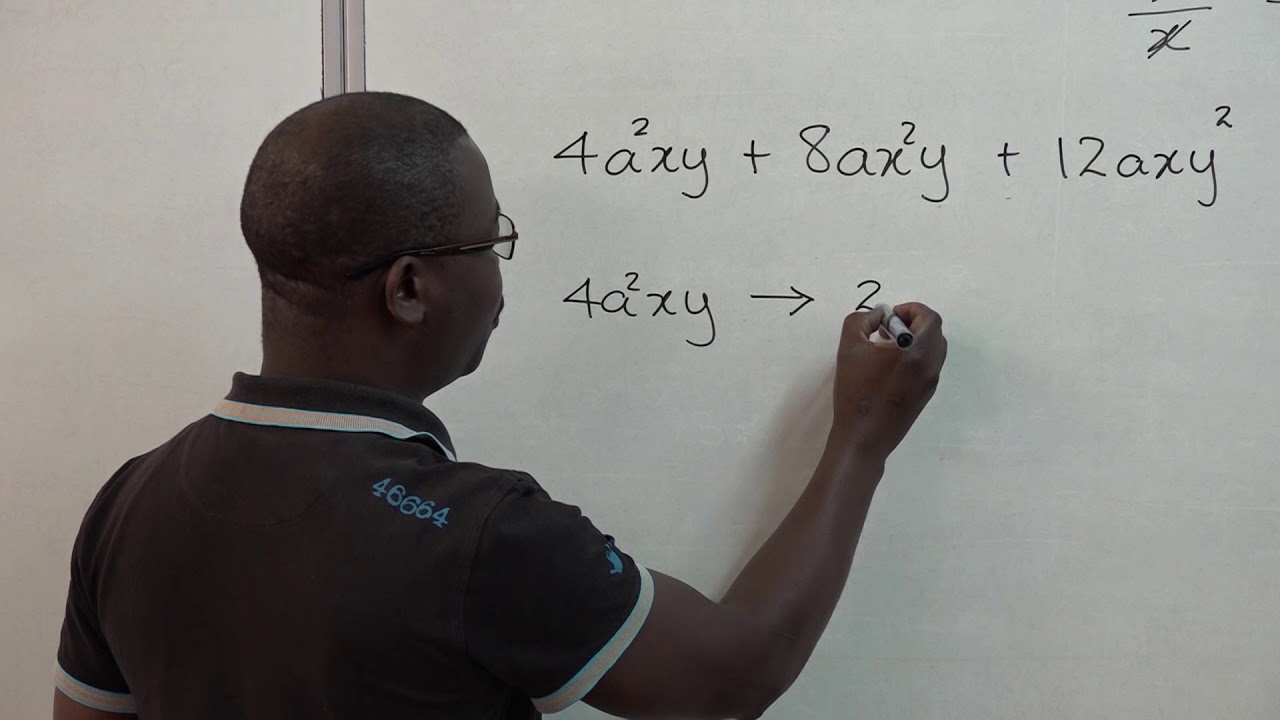 x
4a²xy + 8ax²y + 12axy²
4a²xy → 2
46664